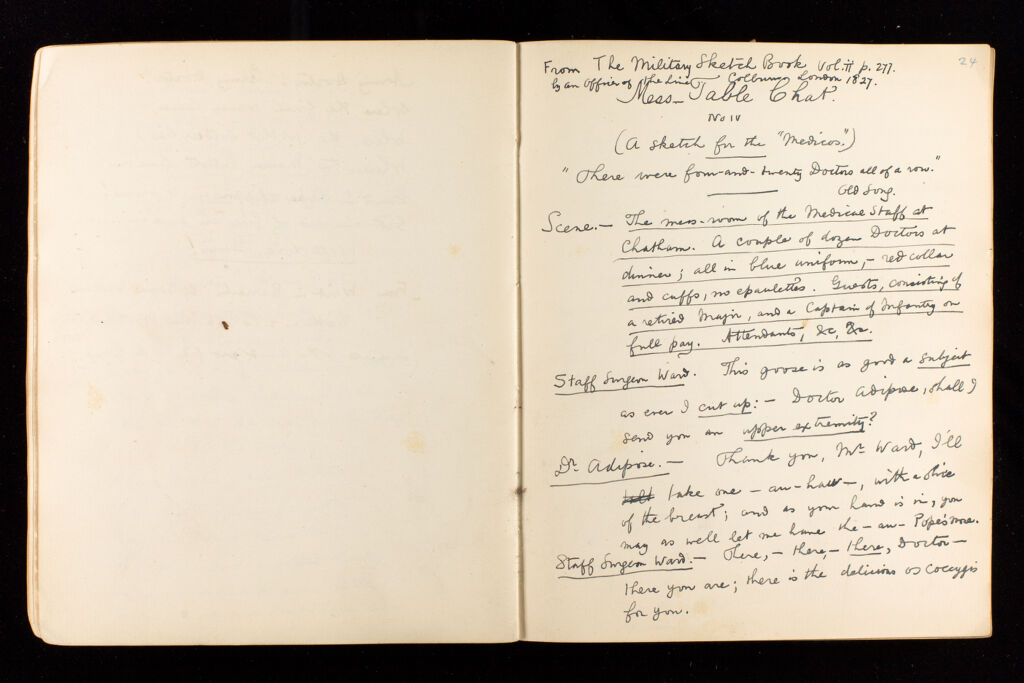 24
From The Military Sketch Book Vol. II p. 277.
by an Officer of the Line Colburn, London 1827.
Mess-Table Chat.
No IV
(A sketch for the "Medicos".)
"There were four-and-twenty Doctors all of a row."
Old Song.
Scene.— The mess-room of the Medical Staff at
Chatham. A couple of dozen Doctors at
dinner; all in blue uniform,— red collar
and cuffs, no epaulettes. Guests, consisting of
a retired Major, and a Captain of Infantry on
full pay. Attendants, &c, &c.
Staff Surgeon Ward. This goose is as good a subject
as ever I cut up:— Doctor Adipose, shall I
send you an upper extremity?
Dr. Adipose.— Thank you, Mr. Ward, I'll
take one — au — hau —, with a slice
of the breast; and as your hand is in, you
may as well let me have the — au — Pope's nose.
Staff Surgeon Ward.— There, — there, — there, Doctor —
there you are; there is the delicious os coccygis
for you.